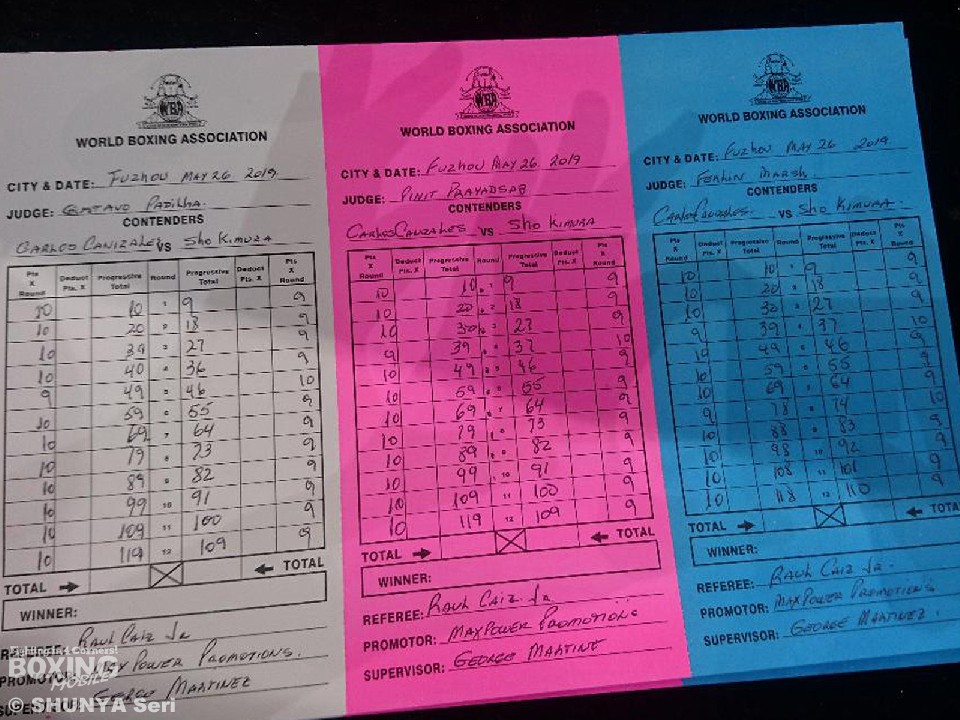 WBA
WORLD BOXING ASSOCIATION
CITY & DATE: FUZHOU MAY 26 2019
JUDGE: GUSTAVO PADILHA.
CONTENDERS
CARLOS CANIZALES VS SHO KIMURA
Pts X Round Deduct Pts. X Progressive Total Round Progressive Total Deduct Pts. X Pts X Round
10 10 9 9
10 20 18 9
10 30 27 9
10 40 36 9
9 49 46 10
10 59 55 9
10 69 64 9
10 79 73 9
10 89 82 9
10 99 10 91 9
10 109 11 100 9
10 119 12 109 9
TOTAL TOTAL
WINNER:
RAUL CAIZ JR
PROMOTOR: MAX POWER PROMOTIONS.
GEORGE MARTINEZ
WBA
WORLD BOXING ASSOCIATION
CITY & DATE: FUZHOU MAY 26 2019
JUDGE: PINIT PRAYADSAB
CONTENDERS
CARLOS CANIZALES VS SHO KIMURA
Pts X Round Deduct Pts. X Progressive Total Round Progressive Total Deduct Pts. X Pts X Round
10 10 9 9
10 20 18 9
10 30 27 9
9 39 37 10
10 49 46 9
10 59 55 9
10 69 64 9
10 79 73 9
10 89 82 9
10 99 10 91 9
10 109 11 100 9
10 119 12 109 9
TOTAL TOTAL
WINNER:
REFEREE: RAUL CAIZ JR
PROMOTOR: MAXPOWER PROMOTIONS
SUPERVISOR: GEORGE MARTINE
WBA
WORLD BOXING ASSOCIATION
CITY & DATE: FUZHOU MAY 26 2019
JUDGE: FERLIN MARSH.
CONTENDERS
CARLOS CANIZALES. VS SHO KIMURA.
Pts X Round Deduct Pts. X Progressive Total Round Progressive Total Deduct Pts. X Pts X Round
10 10 9 9
10 20 18 9
10 30 27 9
9 39 37 10
10 49 46 9
10 59 55 9
10 69 64 9
9 78 74 10
10 88 83 9
10 98 10 92 9
10 108 11 101 9
10 118 12 110 9
TOTAL TOTA
WINNER:
REFEREE: RAUL CAIZ JR.
PROMOTOR: MAXPOWER PROMOTIONS
SUPERVISOR: GEORGE MARTINEZ.
Fighting in 4 Corners!
BOXING
MOBILE
© SHUNYA Seri